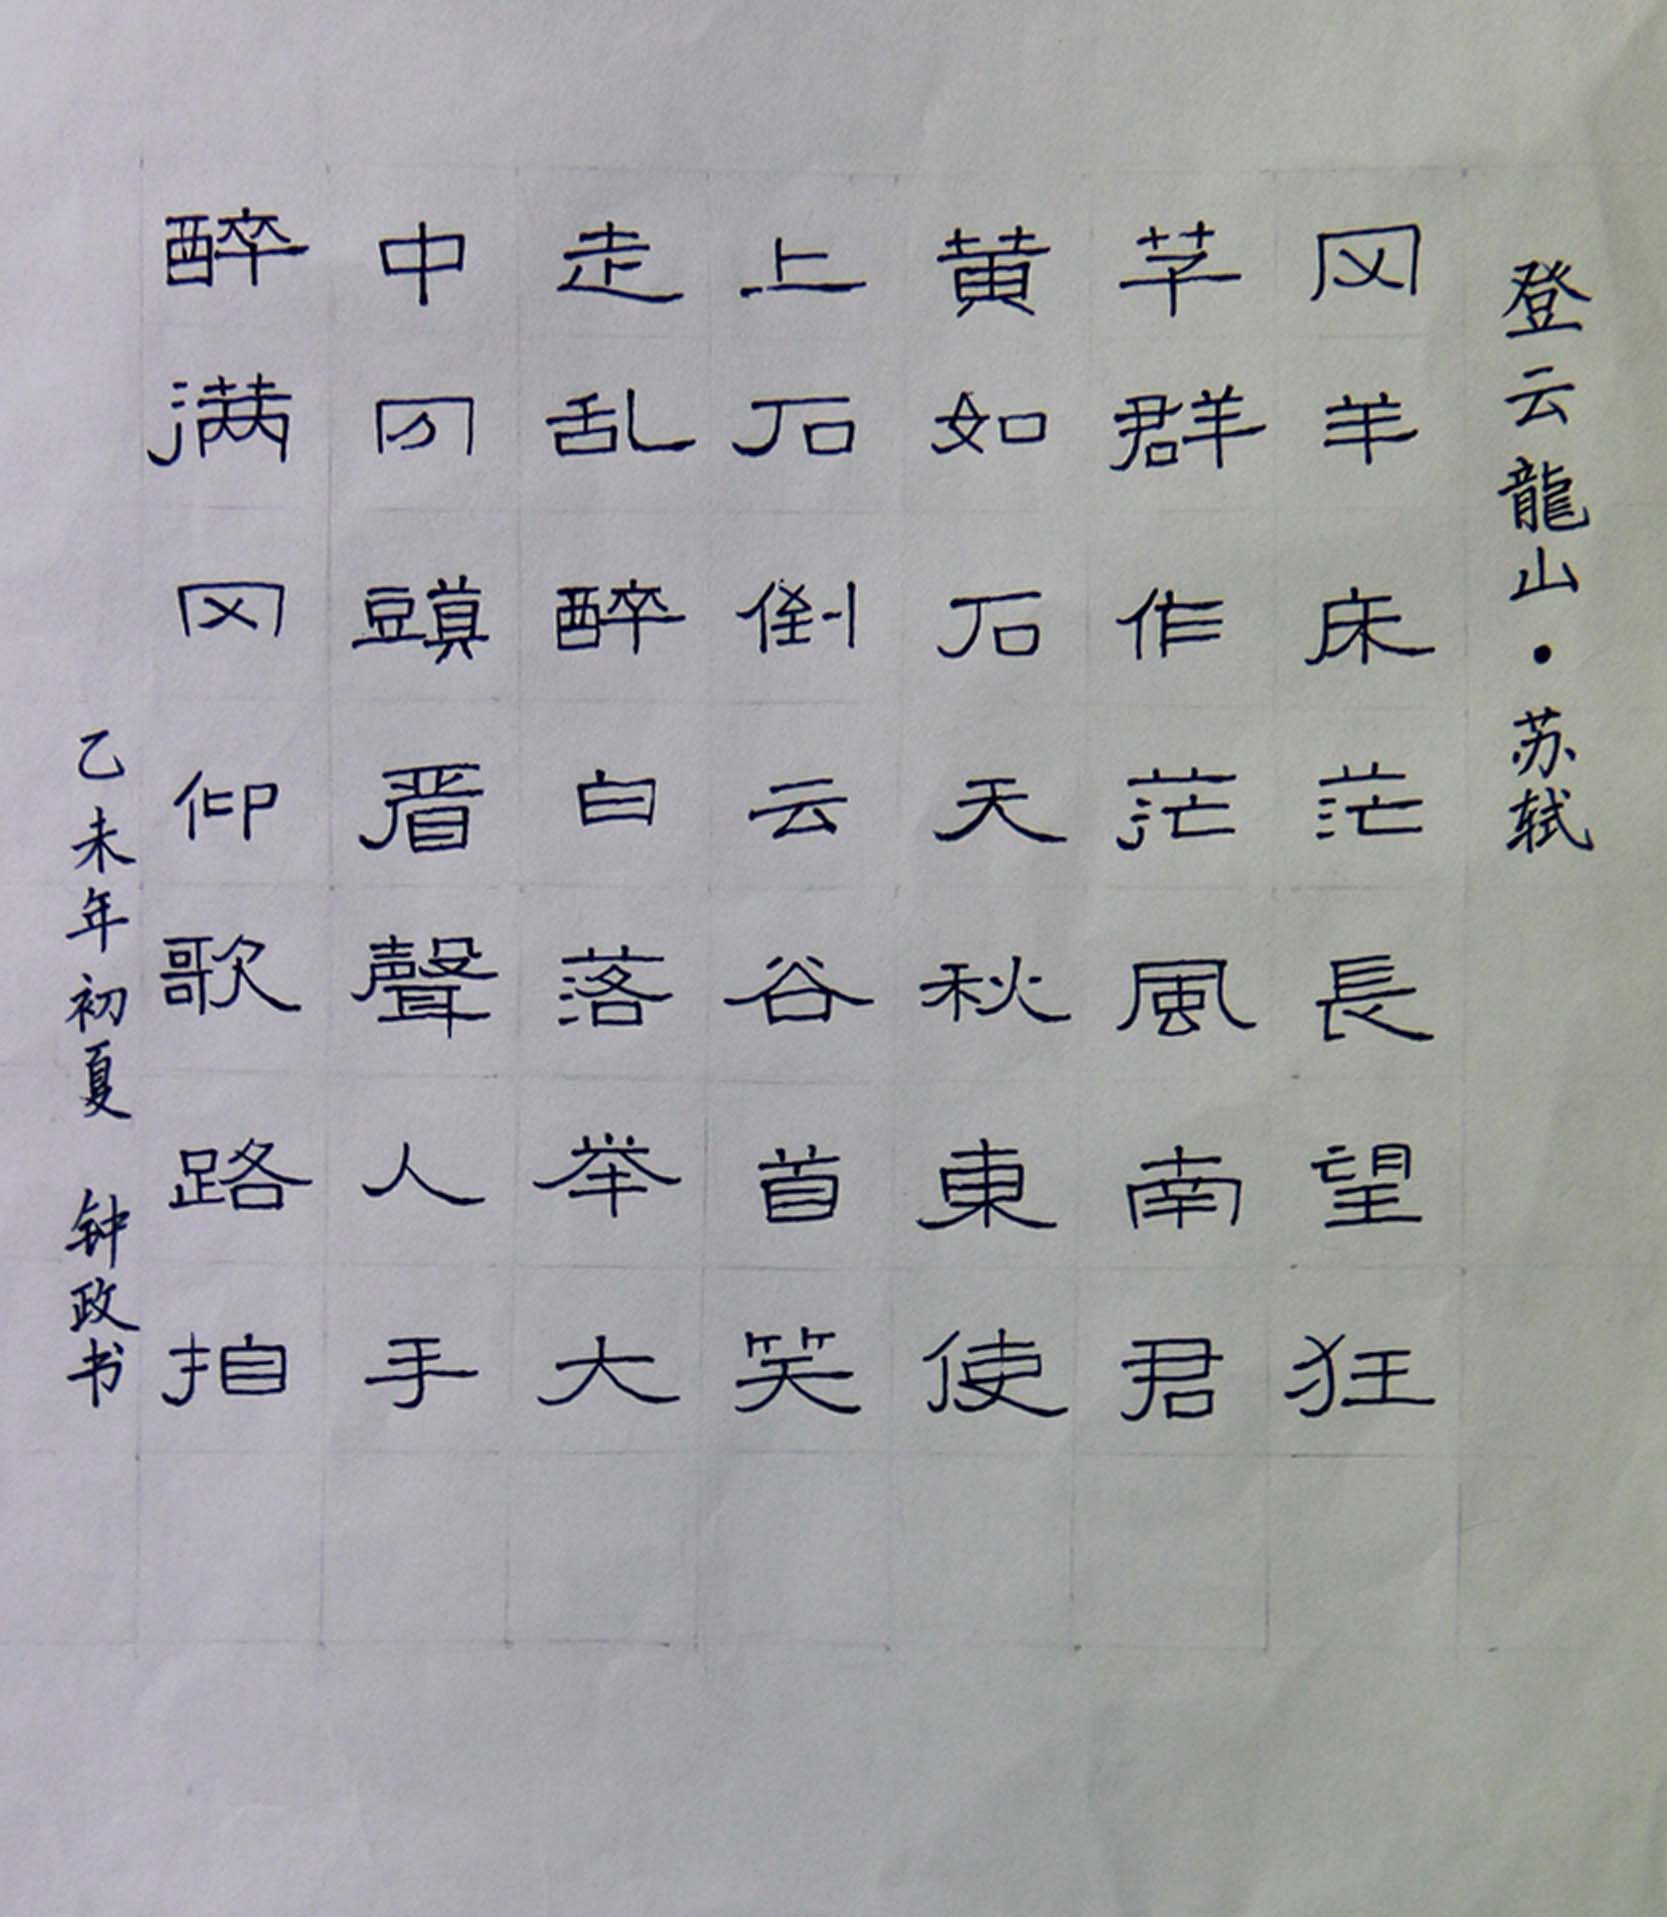 登云龍山·苏轼
醉中走上黄茅冈
满冈乱石如群羊
冈頭醉倒石作床
仰看白云天茫茫
歌聲落谷秋風長
路人举首東南望
拍手大笑使君狂
乙未年初夏 钟政书